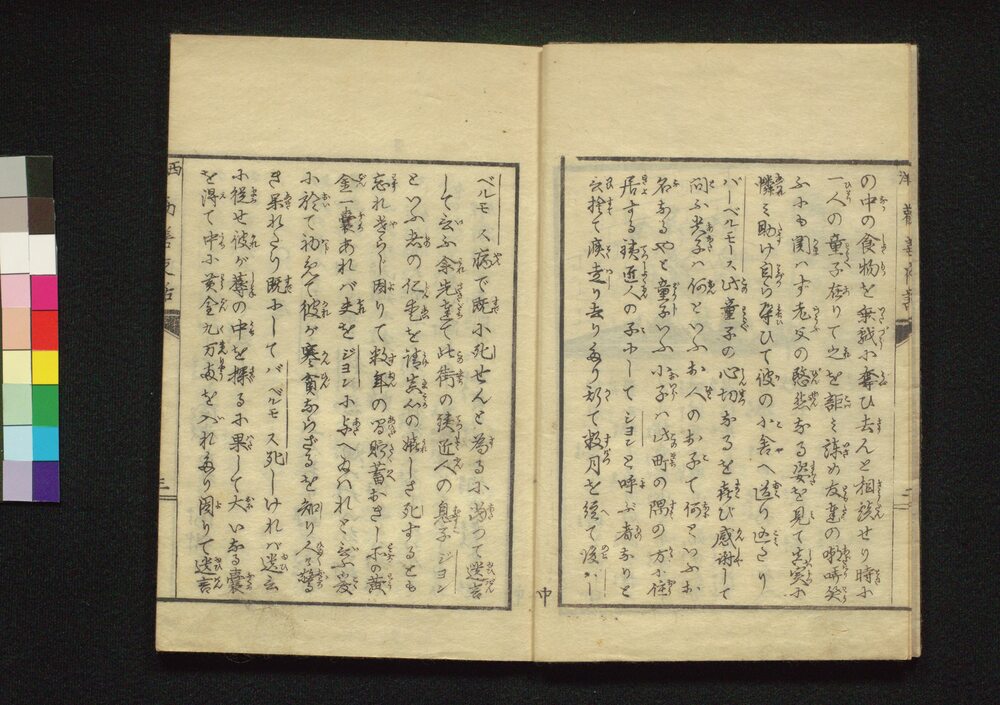 の中の食物を無理に奪ひ去んと相談せり時に
一人の童子在りて之を詎み諫め友達の嘲哢笑
ふにも関ハず老父の愍然なる姿を見て真実に
憐ミ助け自ら尋ひて彼の小舎へ送り返したり
バーベルモース此童子の心切なるを喜び感謝して
問ふ先子ハ何といふお人のお子で何といふお
名なるやと童子いふ小子ハ此町の隅の方に住
居する鉄近人の子にしてジヨンと呼ぶ者なりと
云捨て疾走り去りたり斯て数月を経て後バー
ベルモース病で既に死せんと為るに当つて遺言
して云ふ余先達て此街の鉄近人の息子ジヨン
といふ者の仁恵を請実心の嬉しさ死するとも
忘れざらし因りて数年の間貯蓄おきし所の黄
金一嚢あれバ史をジヨンに与へ給ハれと云ふ爰
に於て初めて彼が寒貧ならざるを知り人々驚
き呆れたり既にしてバベルモス死しけれバ遺言
に従せ彼が蓐の中を探るに果して大いなる嚢
を得て中に黄金九万枚を入れあり因りて遺言
中
三